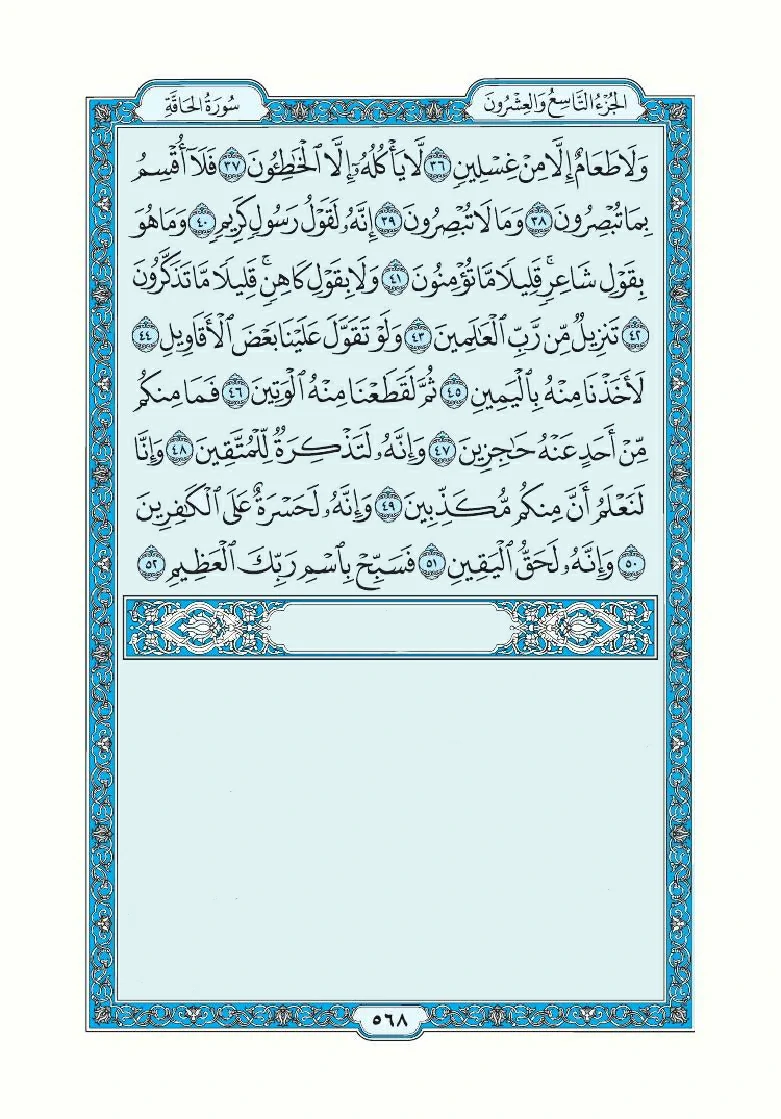 الجُزْءُ التَّاسِعُ وَالعِشْرُونَ
سُورَةُ الحَاقَّةِ
وَلَا طَعَامٌ إِلَّا مِنْ غِسْلِينٍ ٣٦ لَّا يَأْكُلُهُۥٓ إِلَّا ٱلْخَٰطِـُٔونَ ٣٧ فَلَآ أُقْسِمُ
بِمَا تُبْصِرُونَ ٣٨ وَمَا لَا تُبْصِرُونَ ٣٩ إِنَّهُۥ لَقَوْلُ رَسُولٍ كَرِيمٍ ٤٠ وَمَا هُوَ
بِقَوْلِ شَاعِرٍ ۚ قَلِيلًا مَّا تُؤْمِنُونَ ٤١ وَلَا بِقَوْلِ كَاهِنٍ ۚ قَلِيلًا مَّا تَذَكَّرُونَ
٤٢ تَنزِيلٌ مِّن رَّبِّ ٱلْعَٰلَمِينَ ٤٣ وَلَوْ تَقَوَّلَ عَلَيْنَا بَعْضَ ٱلْأَقَاوِيلِ ٤٤
لَأَخَذْنَا مِنْهُ بِٱلْيَمِينِ ٤٥ ثُمَّ لَقَطَعْنَا مِنْهُ ٱلْوَتِينَ ٤٦ فَمَا مِنكُم
مِّنْ أَحَدٍ عَنْهُ حَٰجِزِينَ ٤٧ وَإِنَّهُۥ لَتَذْكِرَةٌ لِّلْمُتَّقِينَ ٤٨ وَإِنَّا
لَنَعْلَمُ أَنَّ مِنكُم مُّكَذِّبِينَ ٤٩ وَإِنَّهُۥ لَحَسْرَةٌ عَلَى ٱلْكَٰفِرِينَ
٥٠ وَإِنَّهُۥ لَحَقُّ ٱلْيَقِينِ ٥١ فَسَبِّحْ بِٱسْمِ رَبِّكَ ٱلْعَظِيمِ ٥٢
٥٦٨